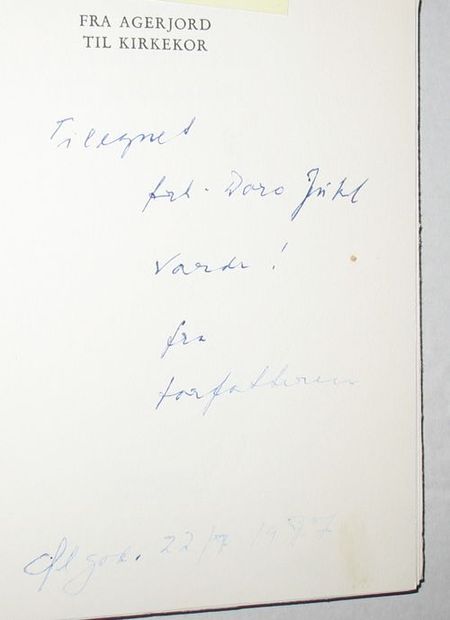 FRA AGERJORD
TIL KIRKEKOR
Tilegnet
frk. Dora Juhl
Varde!
fra
forfatteren
22/7 1977